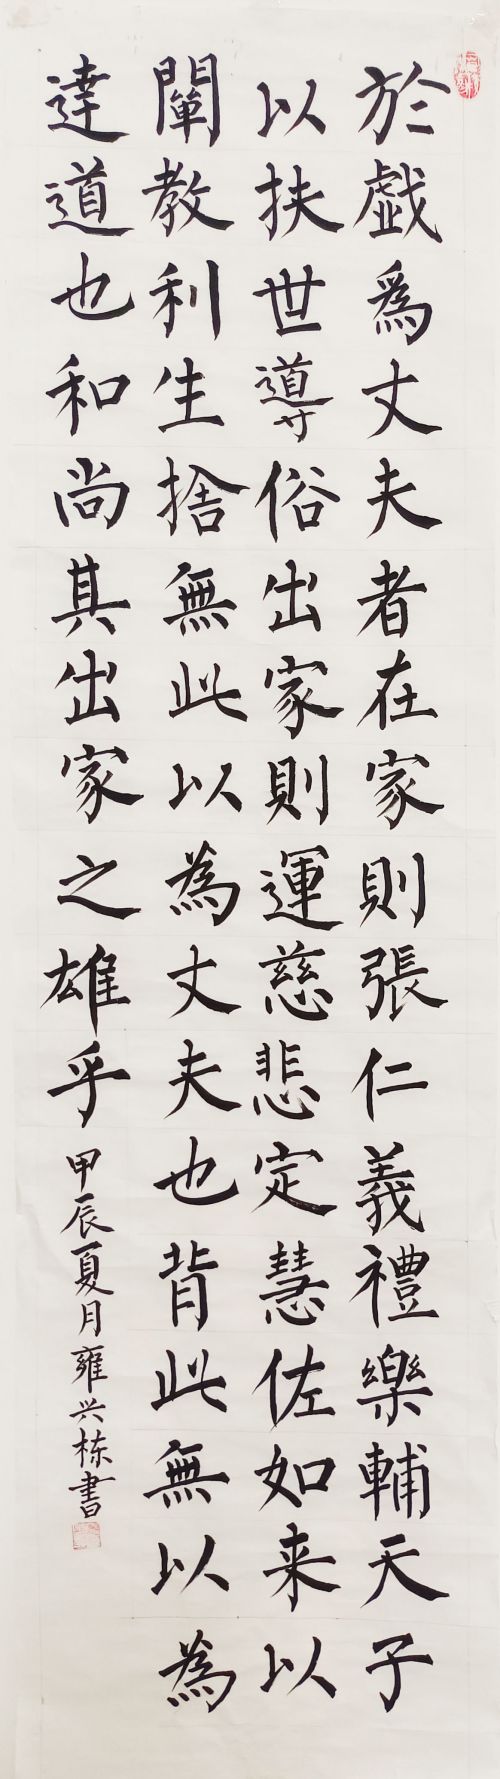 於戯爲丈夫者在家則張仁義禮樂輔天子
以扶世導俗出家則運慈悲定慧佐如来以
闡教利生捨無此以為丈夫也背此無以為
達道也和尚其出家之雄乎
甲辰夏月雍兴栋書